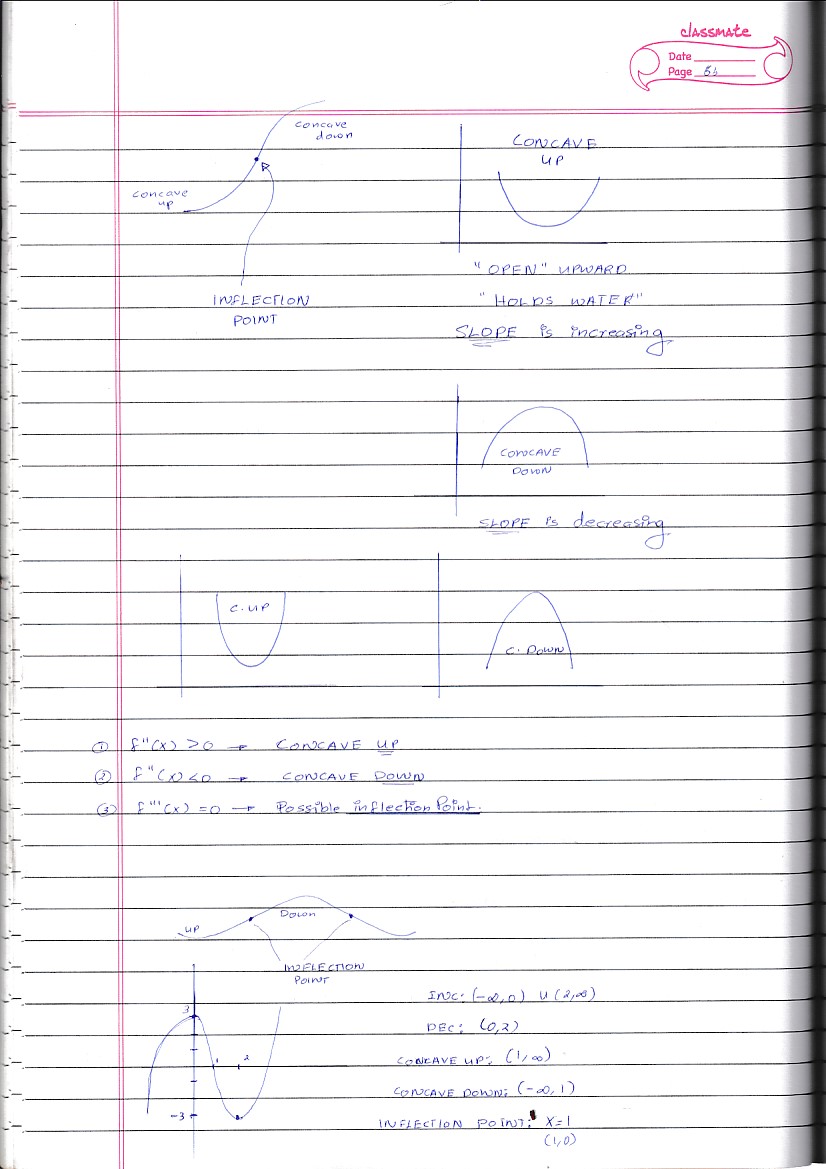 classmate
Date
Page
Concave
down
CONCAVE
UP
Concave
up
"OPEN" UPWARD
INFLECTION
POINT
"HOLDS WATER"
SLOPE is increasing
CONCAVE
DOWN
SLOPE is decreasing
C.UP
C.DOWN
① f''(x) >0 → CONCAVE UP
② f''(x) <0 → CONCAVE DOWN
③ f'''(x) =0 → Possible inflection Point.
UP
Down
INFLECTION
POINT
INC: (-∞,0) U (2,∞)
3
DEC: (0,2)
1 2
CONCAVE UP: (1,∞)
CONCAVE DOWN: (-∞,1)
-3
INFLECTION POINT: X=1
(1,0)